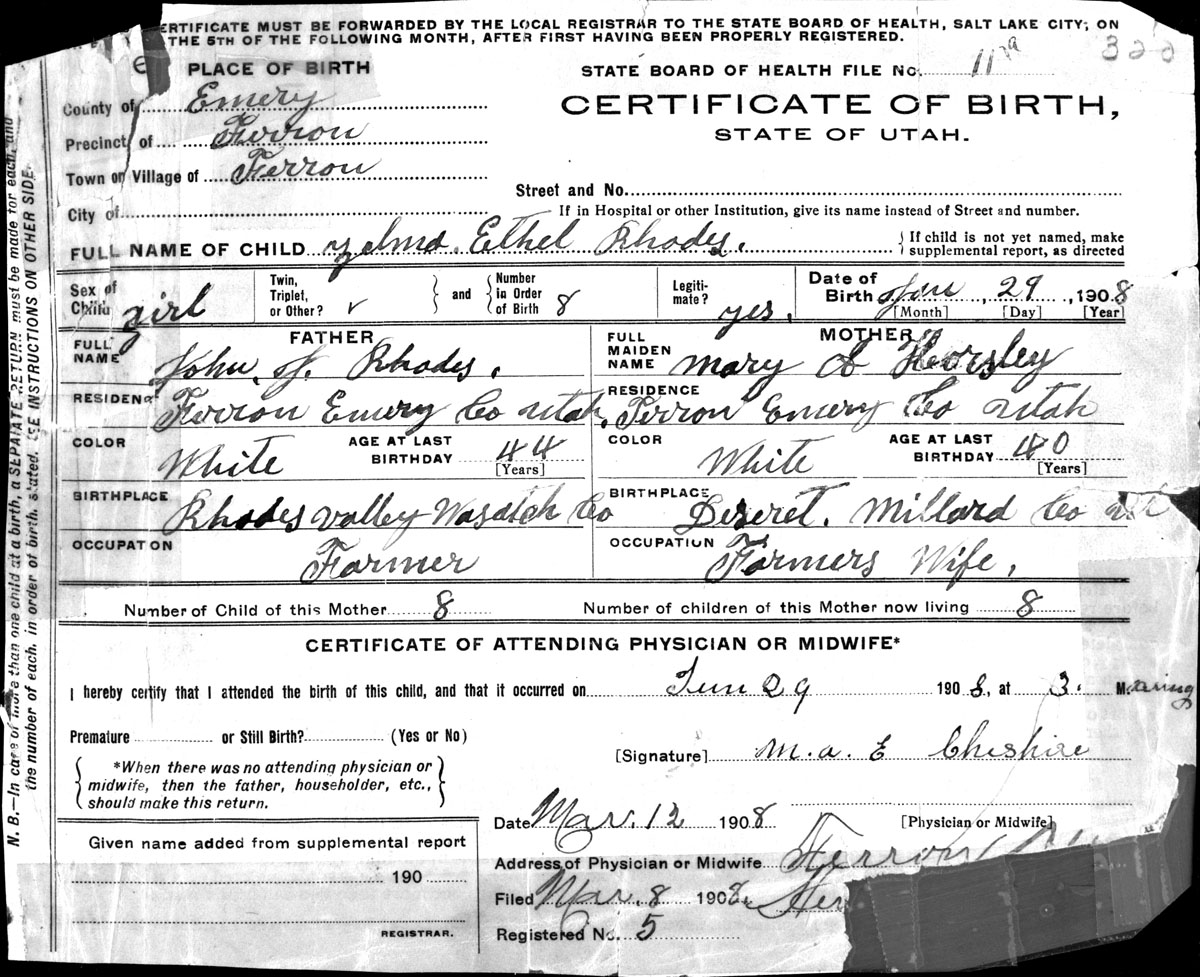 CERTIFICATE MUST BE FORWARDED BY THE LOCAL REGISTRAR TO THE STATE BOARD OF HEALTH, SALT LAKE CITY, ON
THE 5TH OF THE FOLLOWING MONTH, AFTER FIRST HAVING BEEN PROPERLY REGISTERED.
PLACE OF BIRTH
STATE BOARD OF HEALTH FILE No. 119
County of Emery
CERTIFICATE OF BIRTH,
Precinct of Ferron
STATE OF UTAH.
Town or Village of Ferron
Street and No.
City of
If in Hospital or other Institution, give its name instead of Street and number.
FULL NAME OF CHILD Zelma Ethel Rhodes.
If child is not yet named, make
supplemental report, as directed
Sex of Child girl
Twin, Triplet, or Other? and Number in Order of Birth 8
Legiti-mate? yes.
Date of Birth Jan, 29, 1908
[Month] [Day] [Year]
FATHER
MOTHER
FULL NAME John. Rhodes.
FULL MAIDEN NAME Mary Horsley
RESIDENCE Ferron Emery Co Utah.
RESIDENCE Ferron Emery Co Utah
COLOR White AGE AT LAST BIRTHDAY 44 [Years]
COLOR White AGE AT LAST BIRTHDAY 40 [Years]
BIRTHPLACE Rhodes Valley Wasatch Co
BIRTHPLACE Deseret. Millard Co Ut
OCCUPATION Farmer
OCCUPATION Farmers Wife,
Number of Child of this Mother 8 Number of children of this Mother now living 8
CERTIFICATE OF ATTENDING PHYSICIAN OR MIDWIFE*
I hereby certify that I attended the birth of this child, and that it occurred on 29 1908, at 3. M.
Premature or Still Birth? (Yes or No)
[Signature] M. A. E Cheshire
*When there was no attending physician or
midwife, then the father, householder, etc.,
should make this return.
Date Mar. 12 1908
[Physician or Midwife]
Given name added from supplemental report
Address of Physician or Midwife Ferron
190
Filed Mar. 8 1908
REGISTRAR.
Registered No. 5
N. B.—In case of more than one child at a birth, a SEPARATE RETURN must be made for each, and
the number of each, in order of birth, stated. SEE INSTRUCTIONS ON OTHER SIDE.